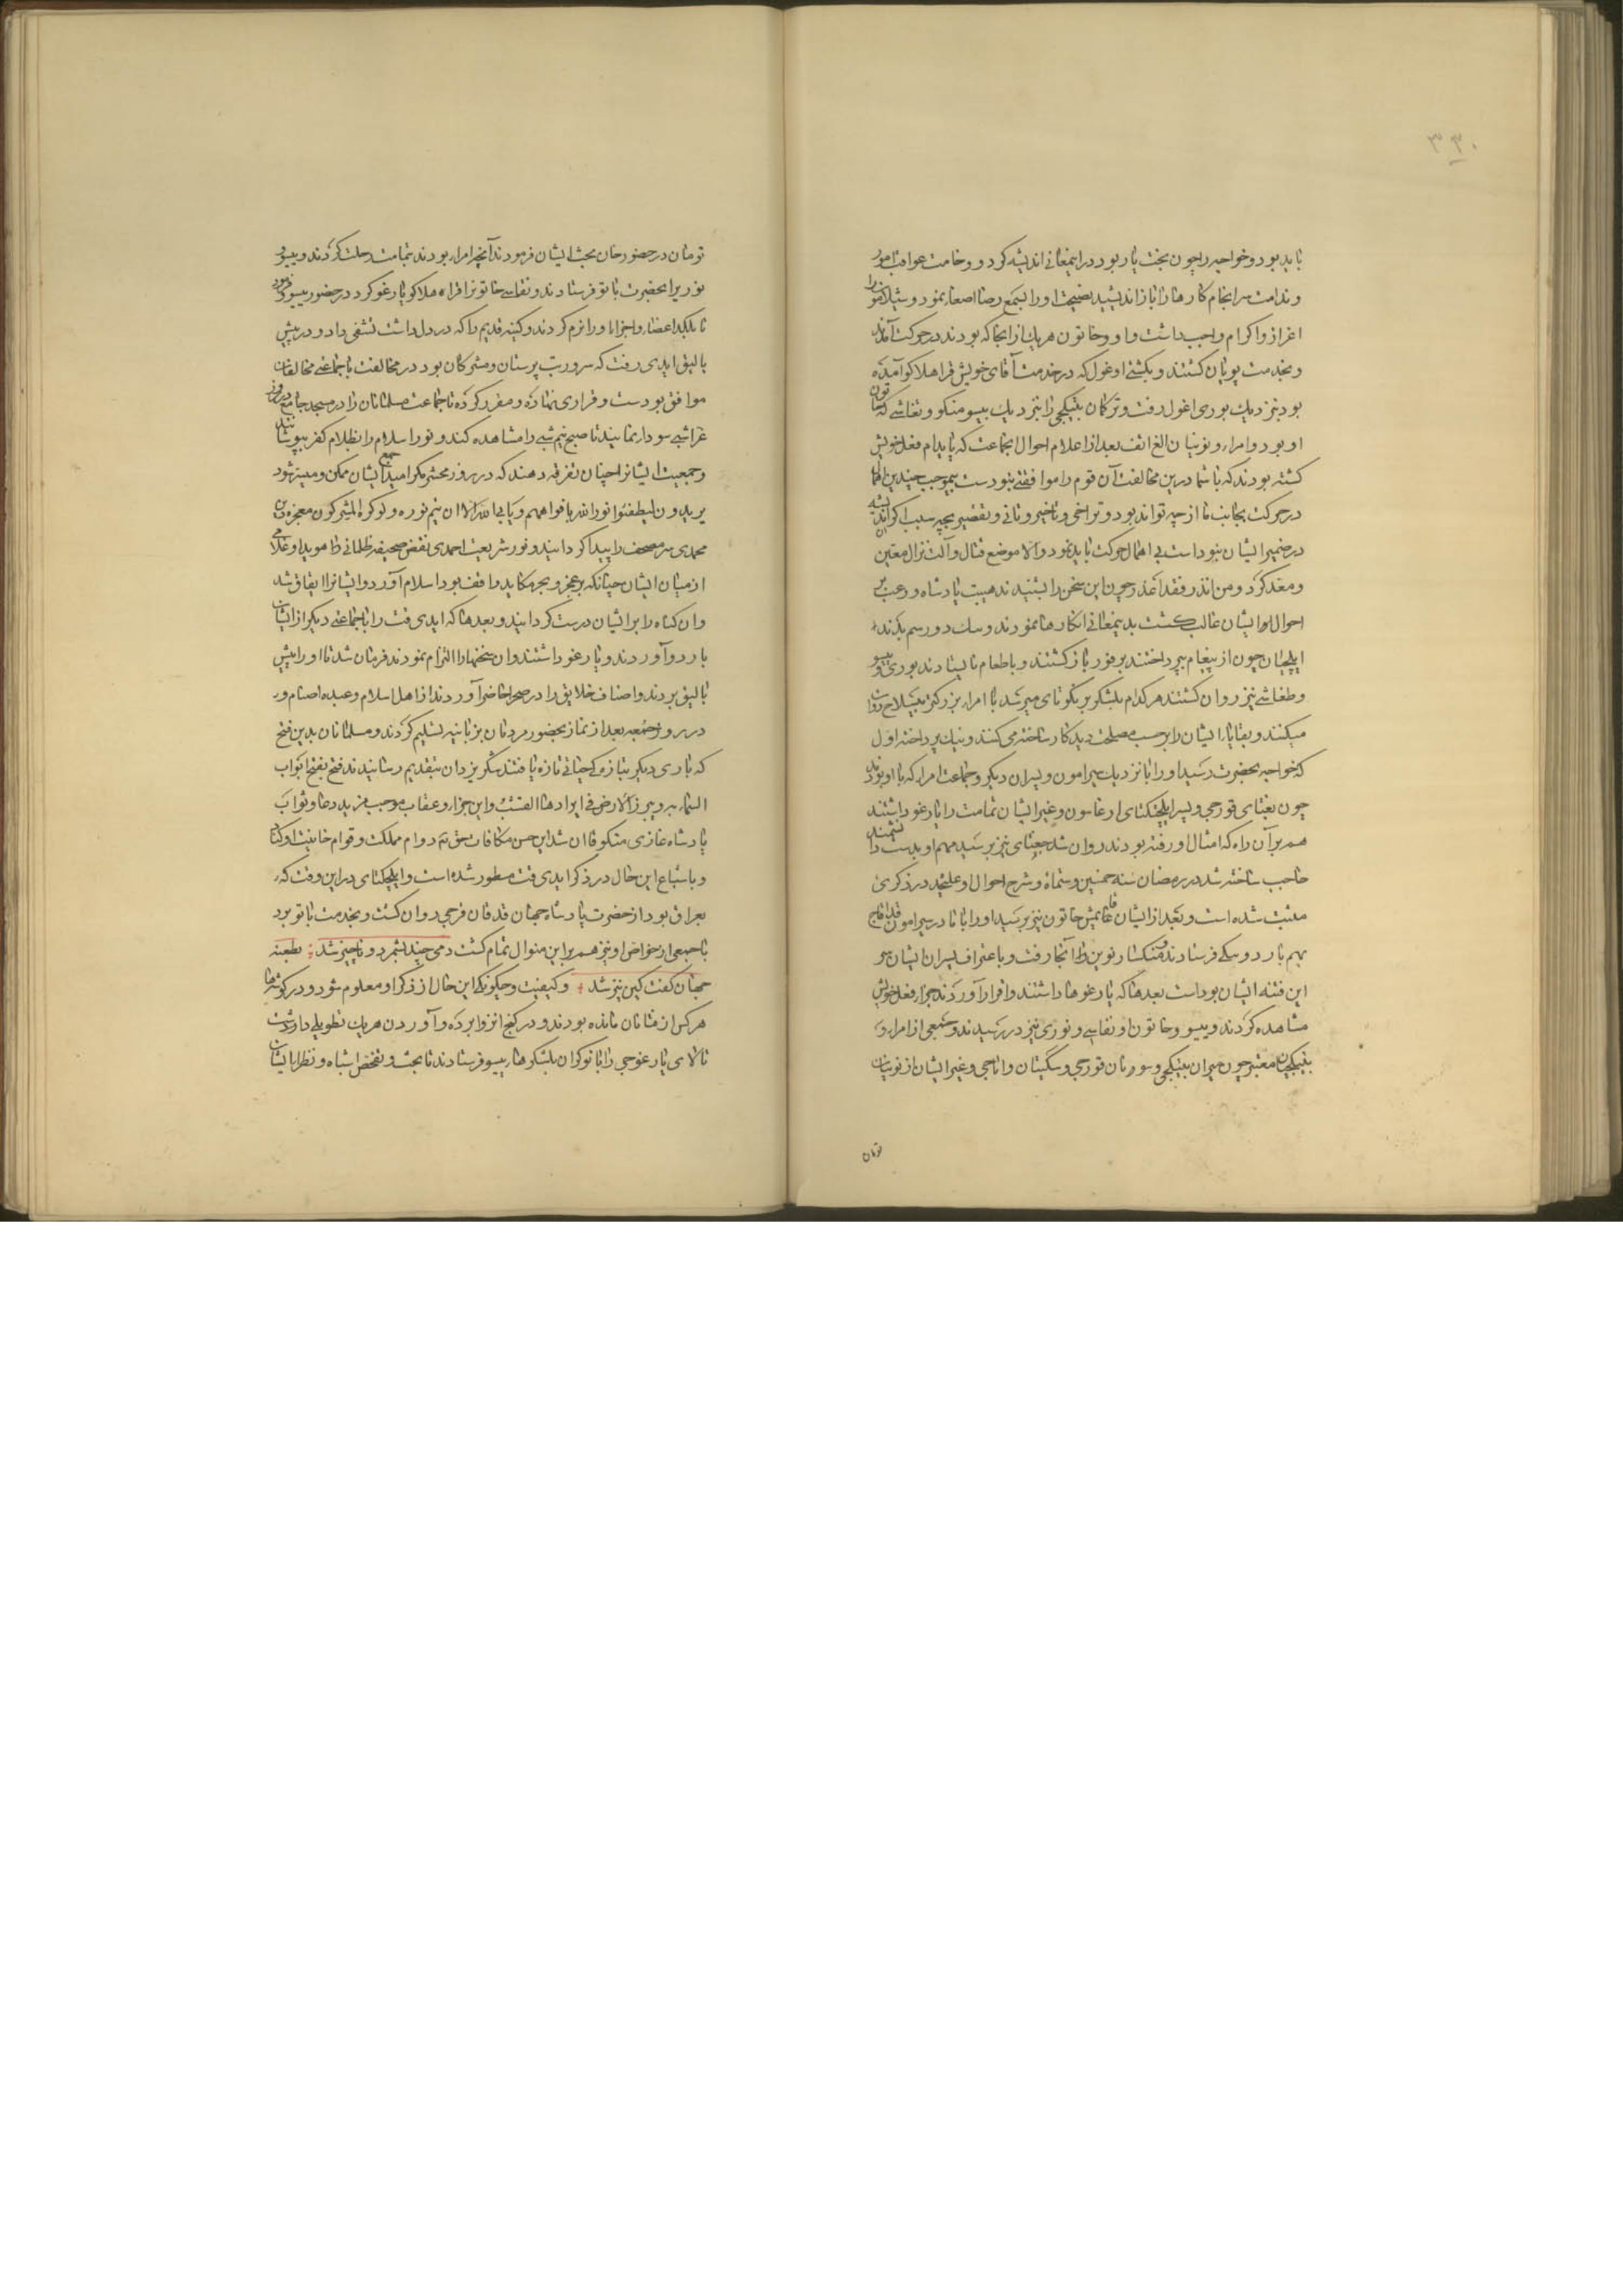 ۳۳۰
باید بود و خواجه را چون بخت یار بود در این معانی اندیشه کرد و وخامت عواقب امور
و ندامت سرانجام کارها را باز اندیشید نصیحت او را بسمع رضا اصغا نمود و شیلامون را
اعزاز و اکرام واجب داشت و او و خاتون هریک از آنجا که بودند در حرکت آمدند
و بخدمت پویان گشتند و یکشی اوغول که در خدمت آقای خویش قرا هلاکو آمده
بود بنزدیک بوری اغول رفت و ترکمان بیتکچی را بنزدیک ییسو منکو و تقاشی که خاتون
او بود و امراء و نوینان الغ ائف بعد از اعلام احوال جماعت که پابدام فعل خویش
کشته بودند که با شما درین مخالفت آن قوم را موافقتی نبودست بموجب چندین اهمال
در حرکت بجانب ما از چه تواند بود و تراخی و تاخیر و تانی و تقصیر بچه سبب اگر اندیشه
در ضمیر ایشان نبوداست بی اهمال حرکت باید نمود و الا موضع قتال و آلت نزال معین
و معد کرد و من انذر فقد اعذر چون این سخن را بشنیدند هیبت پادشاه و رعب بر
احوال ایشان غالب گشت بدین معانی انکارها نمودند و سلک دو رسم یکدند
ایلچیان چون از پیغام بپرداختند بر فور باز گشتند و با طعام نایستادند بوری و ییسو
و طغاشی نیز روان گشتند هر کدام بلشکر برنکوتای میرسد با امراء بزرگتر بی سلاح روان
میکنند و بقایا را ایشان را بر حسب مصلحت دید کار ساخته می کنند و نیک پرداخته اول
که خواجه بحضرت رسید او را با نزدیک سیرامون و پسران دیگر و جماعت امراء که با او بودند
چون بغتای قورجی و پسر ایلچتکتای ارغاسون و غیر ایشان تمامت را یارغو داشتند
هم بر آن راه که امثال او رفته بودند روان شد جغتای نیز برسید مهم او بدست دانشمند
حاجب ساخته شد در رمضان سنه خمسین و ستماة و شرح احوال او علیحده در ذکری
مثبت شده است و بعد از ایشان غایمش خاتون نیز برسید او را با مادر سیرامون قداقاج
بهم باردو سکی فرستادند منکسار نوین آنجا رفت و باعتراف پسران ایشان سر
این فتنه ایشان بوداست بعدما که یارغوها داشتند و اقرار آوردند جزاء فعل خویش
مشاهده کردند و ییسو و خاتون او تقاسی و نوری نیز در رسیدند و جمعی از امراء و
بیتکچیان معتبر چون میران بیتکچی و سومان قورجی و سکیتان و اباجی و غیر ایشان از نوینان
تومان
تومان در حضور خان بحث ایشان فرمودند آنچه امراء بودند بتمامت رحلت کردند و ییسو و
نوری را بحضرت باتو فرستادند و تقاسی خاتون را قراء هلاکو یارغو کرد در حضور ییسو فرمود
تا بلکد اعضاء و اجزاء او را نرم کردند و کینه قدیم را که در دل داشت تشفی داد و در بیش
بالیق ایدی رفت که سرور بت پرستان و مشرکان بود در مخالفت با جماعتی مخالفان
موافق بودست و قراری نهاده و مقرر کرده تا جماعت مسلمانان را در مسجد جامع در روز
عرا شبی سودار نمایند تا صبح نیم شبی را مشاهده کنند و نور اسلام را بظلام کفر بپوشانند
و جمعیت ایشان را چنان تفرقه دهند که در روز محشر مگر امید جمع ایشان ممکن و میسر شود
یریدون لیطفئوا نور الله بافواههم و یابی الله الا ان یتم نوره و لو کره المشرکون معجزه دین
محمدی سر مصحف را پیدا گردانید و نور شریعت احمدی نقض صحیفه ظلمانی ظاهر بود و غلامی
از میان ایشان چنانکه بر عجز و بجر مکاید واقف بود اسلام آورد و ایشان را ایقاق شد
و آن گناه را بر ایشان درست گردانید و بعدما که ایدی قت را با جماعتی دیگر از ایشان
باردو آوردند و یارغو داشتند و آن سخنها را التزام نمودند فرمان شد تا او را ببیش
بالیق بردند و اصناف خلایق را در صحرا حاضر آوردند از اهل اسلام و عبده اصنام و
در روز جمعه بعد از نماز بحضور مردمان بزبانیه تسلیم کردند و مسلمانان بدین فتح
که باری دیگر بتازگی حیاتی تازه یافتند شکر یزدان بتقدیم رسانیدند فتح تفتح ابواب
السماء به و تبرز الارض فی ابرادها القشب و این جزاء و عقاب موجب مزید دعا و ثواب
پادشاه غازی منکو قاآن شد این حسن مکافات حق تعالی دوام مملکت و قوام خانیت او کناد
و باشباع این حال در ذکر ایدی قت مسطور شده است و ایلچکتای در این وقت که
بعراق بود از حضرت پادشاه جهان قدقان قرجی روان گشت و بخدمت باتو برد
با جمعی از خواص او نیز هم بر این منوال تمام گشت دمی چند بشمرد و ناچیز شد ؛ بطعنه
جهان گفت کین نیز شد ؛ و کیفیت و چگونگی این حال از ذکر او معلوم شود و در گوشها
هر کس از فتانان مانده بودند و در کنج انزوا برده و آوردن هر یک تطویلی داشت
بالای یارغوجی را با نوکران بلشکرهاء ییسو فرستادند تا بحث و تفحص اشباه و نظراء ایشان